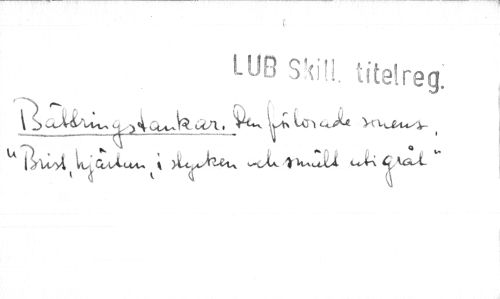 LUB Skill. titelreg.
Bättringstankar. Den förlorade sonens,
"Brist, hjärtan, i stycken och smält uti gråt"